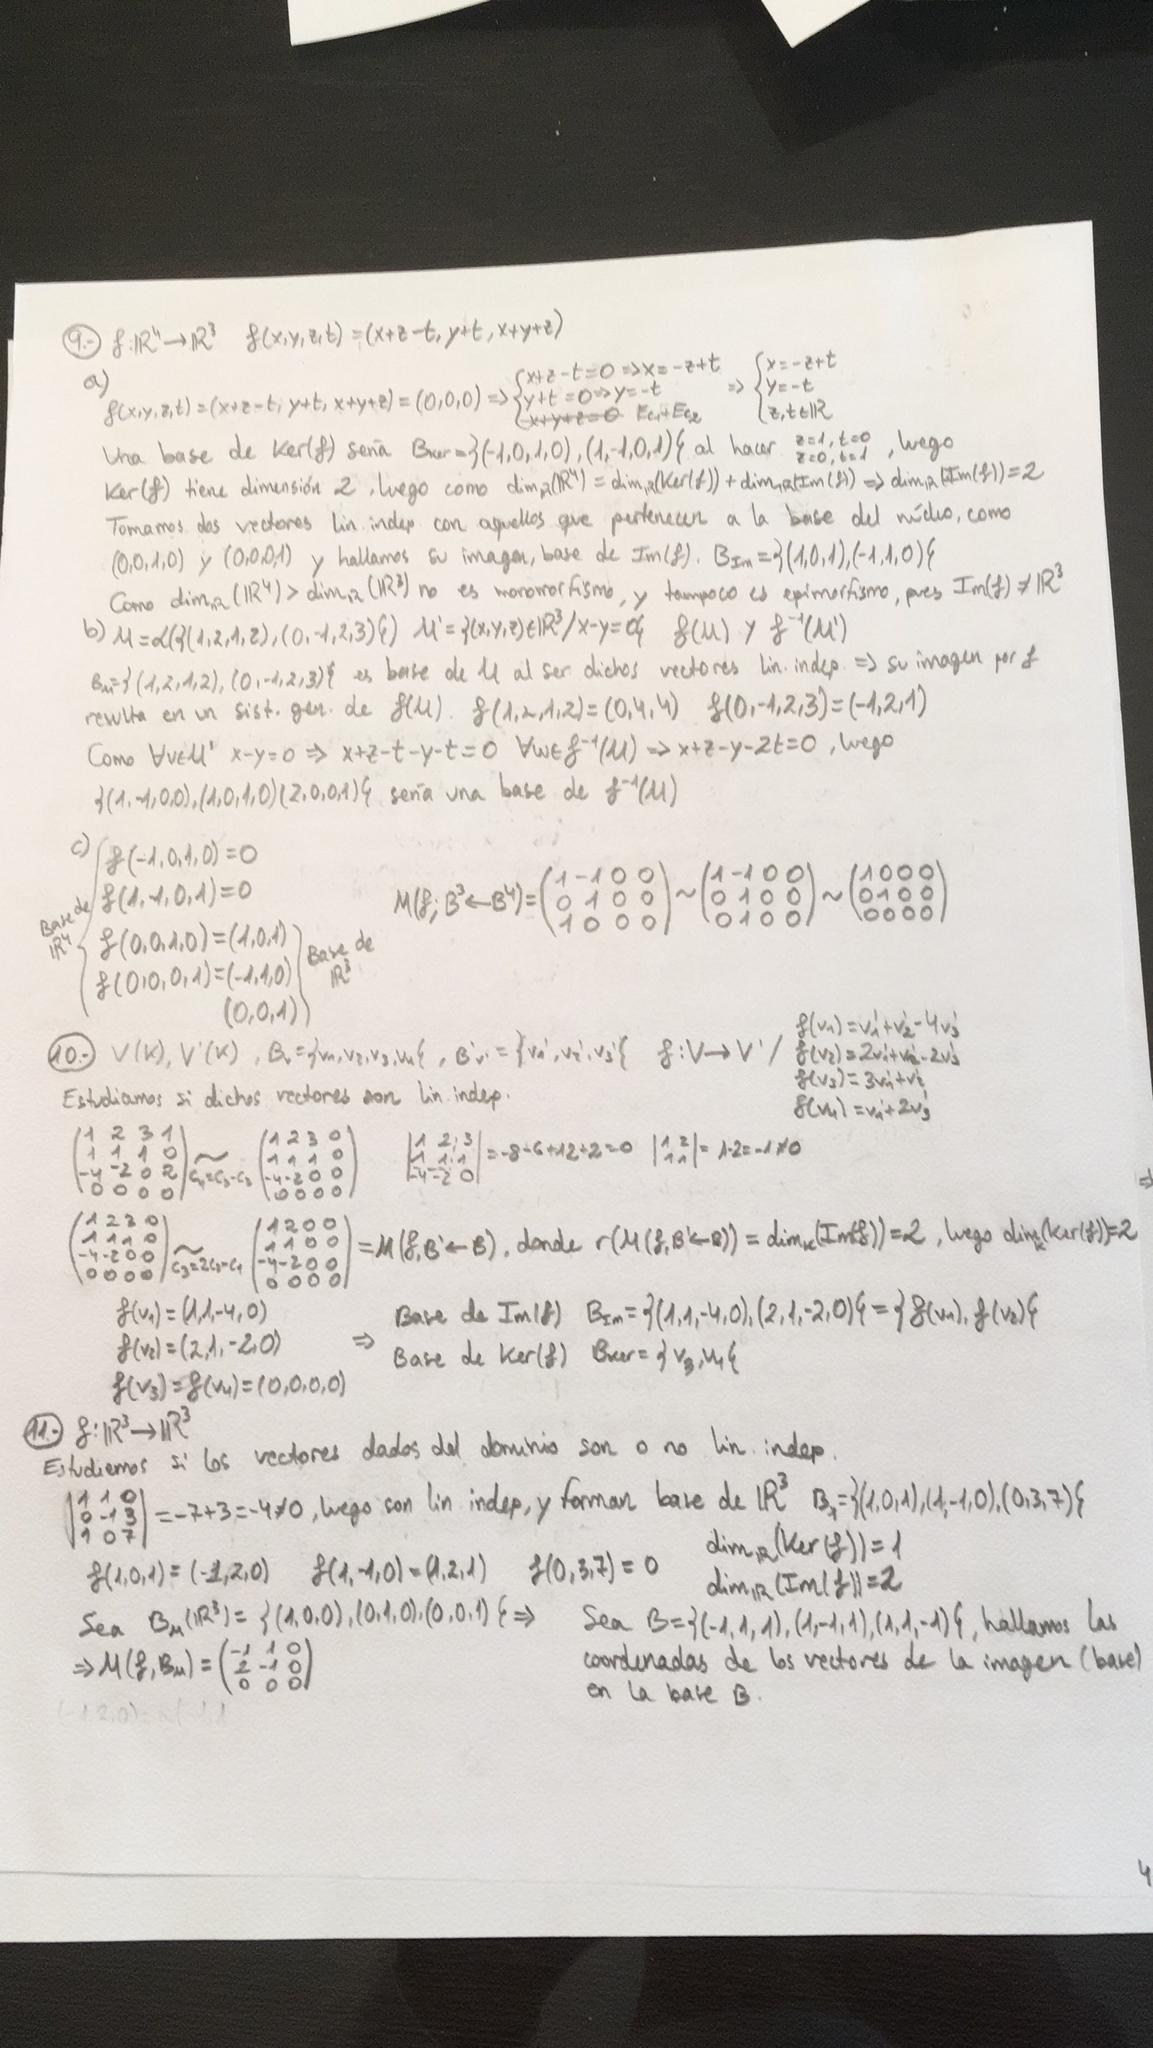 9.- f:ℝ⁴→ℝ³ f(x,y,z,t)=(x+z-t, y+t, x+y+z)
a)
f(x,y,z,t)=(x+z-t, y+t, x+y+z)=(0,0,0) ⇒ {x+z-t=0 ⇒ x=-z+t
y+t=0 ⇒ y=-t
x+y+z=0 Ec₁+Ec₂
⇒ {x=-z+t
y=-t
z,t∈ℝ
Una base de Ker(f) sería B_Ker={(-1,0,1,0),(1,-1,0,1)} al hacer z=1,t=0 z=0,t=1, luego
Ker(f) tiene dimensión 2, luego como dim_ℝ(ℝ⁴)=dim_ℝ(Ker(f))+dim_ℝ(Im(f)) ⇒ dim_ℝ(Im(f))=2
Tomamos dos vectores lin. indep con aquellos que pertenecen a la base del núcleo, como
(0,0,1,0) y (0,0,0,1) y hallamos su imagen, base de Im(f). B_Im={(1,0,1),(-1,1,0)}
Como dim_ℝ(ℝ⁴)>dim_ℝ(ℝ³) no es monomorfismo, y tampoco es epimorfismo, pues Im(f)≠ℝ³
b) U=L({(1,2,1,2),(0,-1,2,3)}) U'={(x,y,z)∈ℝ³/x-y=0} f(U) y f⁻¹(U')
B_U={(1,2,1,2),(0,-1,2,3)} es base de U al ser dichos vectores lin. indep. ⇒ su imagen por f
resulta en un sist. gen. de f(U). f(1,2,1,2)=(0,4,4) f(0,-1,2,3)=(-1,2,1)
Como ∀v∈U' x-y=0 ⇒ x+z-t-y-t=0 ∀w∈f⁻¹(U) ⇒ x+z-y-2t=0, luego
{(1,-1,0,0),(1,0,1,0)(2,0,0,1)} sería una base de f⁻¹(U)
c) f(-1,0,1,0)=0
f(1,-1,0,1)=0
Base de ℝ⁴
f(0,0,1,0)=(1,0,1)
f(0,0,0,1)=(-1,1,0)
(0,0,1)
Base de ℝ³
M(f; B³←B⁴)=(1 -1 0 0 ~ (1 -1 0 0 ~ (1 0 0 0
0 1 0 0 0 1 0 0 0 1 0 0
1 0 0 0) 0 1 0 0) 0 0 0 0)
10.- V(K), V'(K), B_V={v₁,v₂,v₃,v₄}, B'_V'={v₁',v₂',v₃'} f:V→V' /
f(v₁)=v₁'+v₂'-4v₃'
f(v₂)=2v₁'+v₂'-2v₃'
f(v₃)=3v₁'+v₂'
f(v₄)=v₁'+2v₃'
Estudiamos si dichos vectores son lin. indep.
(1 2 3 1 (1 2 3 0 |1 2 3
1 1 1 0 1 1 1 0 1 1 1
-4 -2 0 2 -4 -2 0 0 -4 -2 0| =-8-6+12+2=0 |1 2 1 1|=1-2=-1≠0
0 0 0 0) 0 0 0 0)
⇒
(1 2 3 0 (1 2 0 0
1 1 1 0 1 1 0 0
-4 -2 0 0 -4 -2 0 0 =M(f,B'←B), donde r(M(f,B'←B))=dim_K(Im(f))=2, luego dim_K(Ker(f))=2
0 0 0 0) 0 0 0 0)
f(v₁)=(1,1,-4,0)
f(v₂)=(2,1,-2,0) ⇒
f(v₃)=f(v₄)=(0,0,0,0)
Base de Im(f) B_Im={(1,1,-4,0),(2,1,-2,0)}={f(v₁),f(v₂)}
Base de Ker(f) B_Ker={v₃,v₄}
11.- f:ℝ³→ℝ³
Estudiemos si los vectores dados del dominio son o no lin. indep.
|1 1 0
0 -1 3
1 0 7| =-7+3=-4≠0, luego son lin indep, y forman base de ℝ³ B₁={(1,0,1),(1,-1,0),(0,3,7)}
f(1,0,1)=(-1,2,0) f(1,-1,0)=(1,2,1) f(0,3,7)=0
dim_ℝ(Ker(f))=1
dim_ℝ(Im(f))=2
Sea B_U(ℝ³)={(1,0,0),(0,1,0),(0,0,1)} ⇒
⇒ M(f,B_U)=(-1 1 0
2 -1 0
0 0 0)
Sea B={(-1,1,1),(1,-1,1),(1,1,-1)}, hallamos las
coordenadas de los vectores de la imagen (base)
en la base B.
4